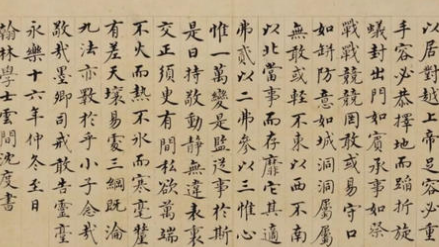 以居對越上帝足容必重
手容必恭擇地而蹈折旋
蟻封出門如賓承事如祭
戰戰兢兢罔敢或易守口
如缾防意如城洞洞屬屬
無敢或輕不東以西不南
以北當事而存靡它其適
弗貳以二弗參以三惟心
惟一萬變是監從事於斯
是曰持敬動靜無違表裏
交正須臾有間私欲萬端
不火而熱不冰而寒毫釐
有差天壤易處三綱既淪
九法亦斁於乎小子念哉
敬哉墨卿司戒敢告靈臺
永樂十六年仲冬至日
翰林學士雲間沈度書